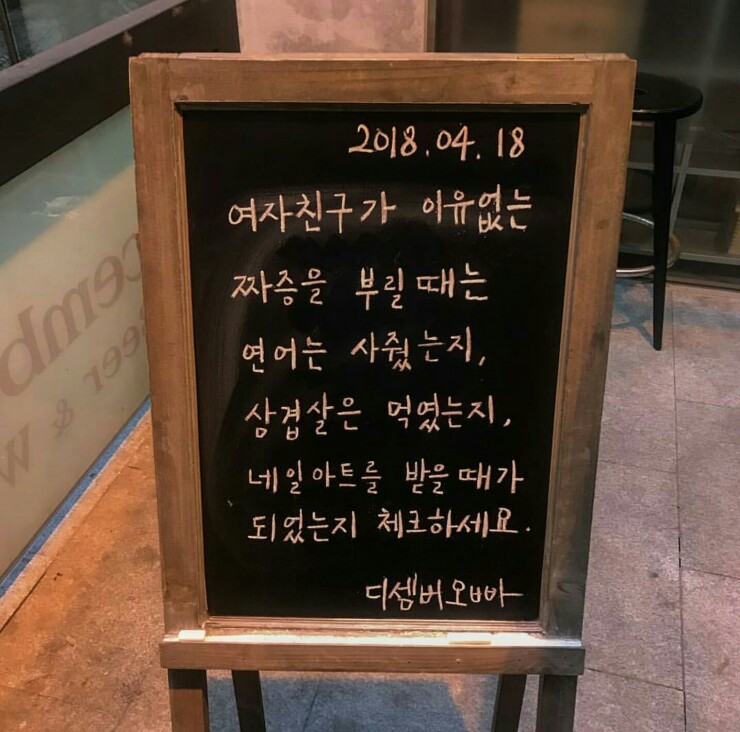 2018.04.18
여자친구가 이유없는
짜증을 부릴 때는
연어는 사줬는지,
삼겹살은 먹였는지,
네일아트를 받을 때가
되었는지 체크하세요.
디셈버오빠
cemb
eer & W